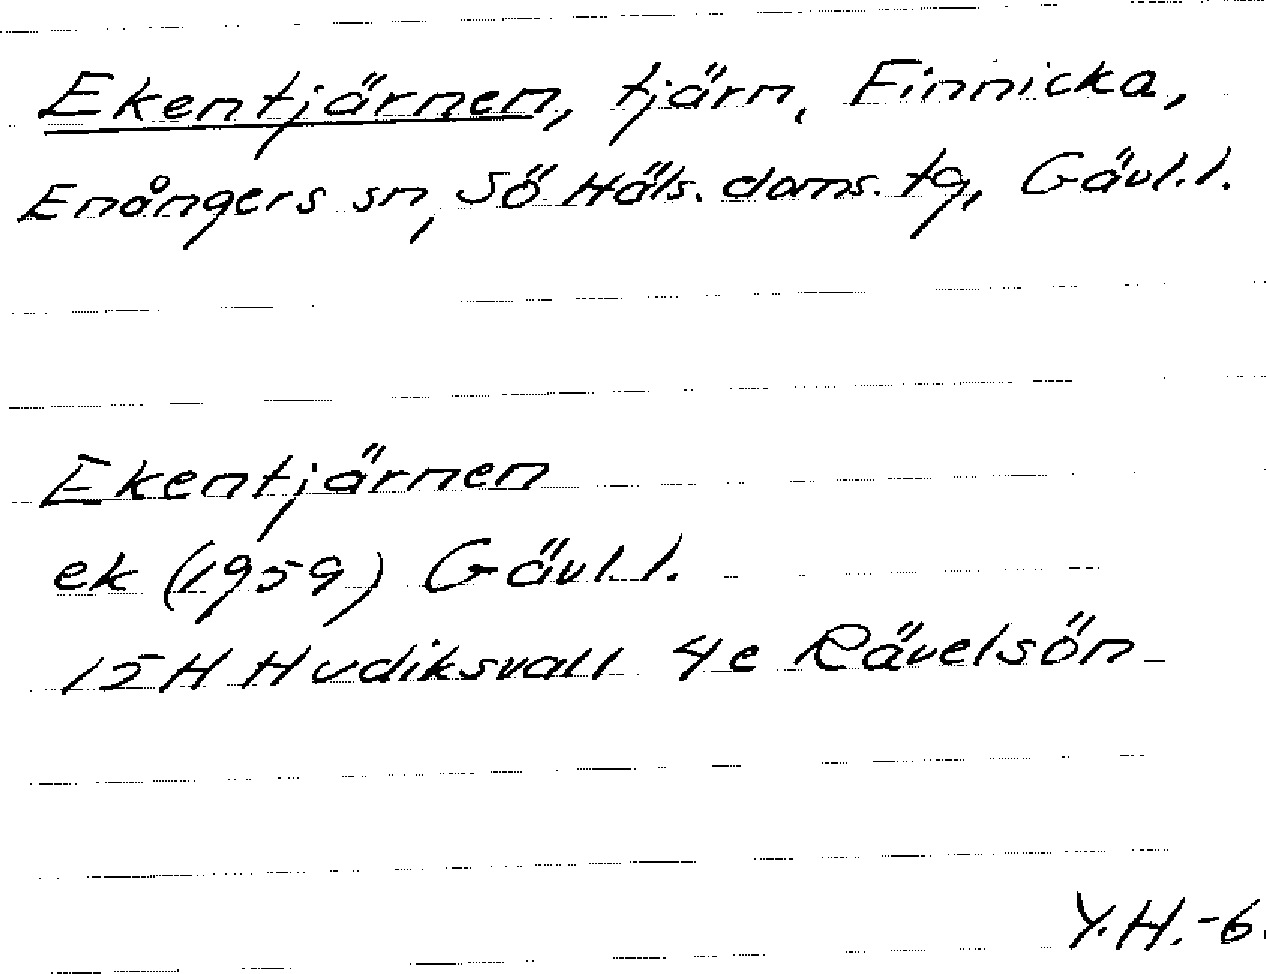 Ekentjärnen, tjärn, Finnicka,
Enångers sn, Sö Häls. doms. tg, Gävl.l.
Ekentjärnen
ek (1959) Gävl.l.
15H Hudiksvall 4e Rävelsön
Y.H.-6.